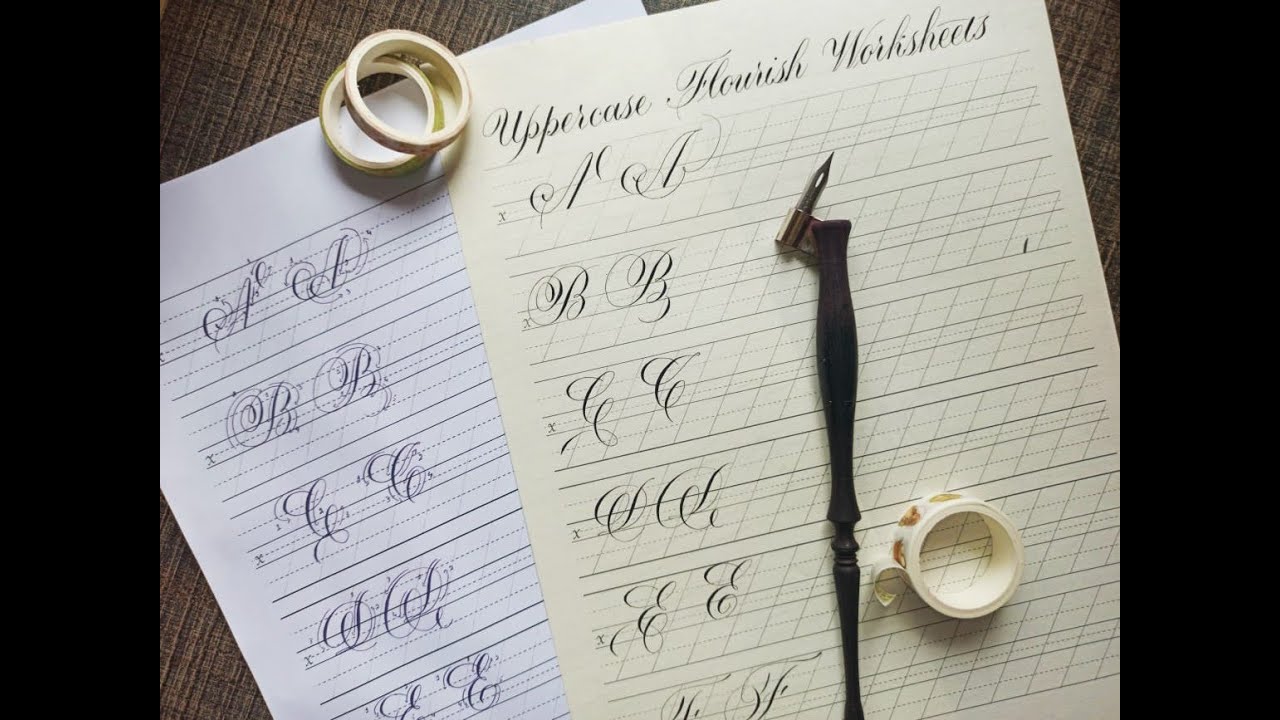 Uppercase Flourish Worksheets
x A A
x B B
x C C
x D D
x E E
F F
x A A
x B B
x C C
x D D
E E